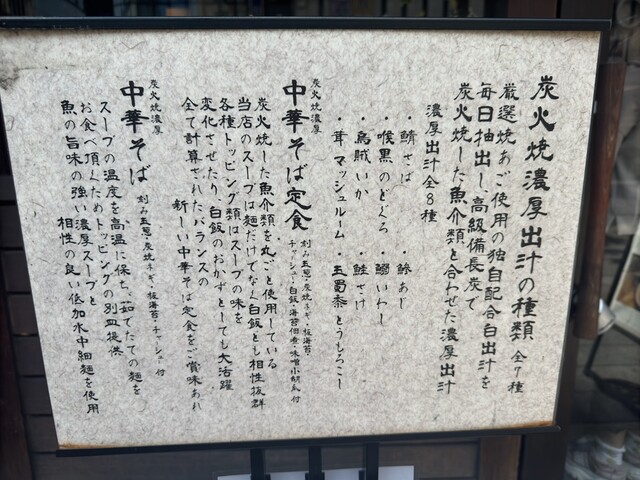 炭火焼濃厚出汁の種類 全7種
厳選焼あご使用の独自配合白出汁を
毎日抽出し、高級備長炭で
炭火焼した魚介類と合わせた濃厚出汁
濃厚出汁全8種
・鯖さば ・鯵あじ
・喉黒のどぐろ ・鰯いわし
・烏賊いか ・鮭さけ
・茸マッシュルーム ・玉蜀黍とうもろこし
炭火焼濃厚
中華そば定食 刻み玉葱・炭焼ネギ・板海苔・
チャーシュー・白飯・海苔佃煮・味噌小胡瓜付
炭火焼した魚介類を丸ごと使用している
当店のスープは麺だけでなく白飯とも相性抜群
各種トッピング類はスープの味を
変化させたり、白飯のおかずとしても大活躍
全て計算されたバランスの
新しい中華そば定食をご賞味あれ
炭火焼濃厚
中華そば 刻み玉葱・炭焼ネギ・板海苔・チャーシュー付
スープの温度を高温に保ち、茹でたての麺を
お食べ頂くためトッピングの別皿提供
魚の旨味の強い濃厚スープと
相性の良い低加水中細麺を使用